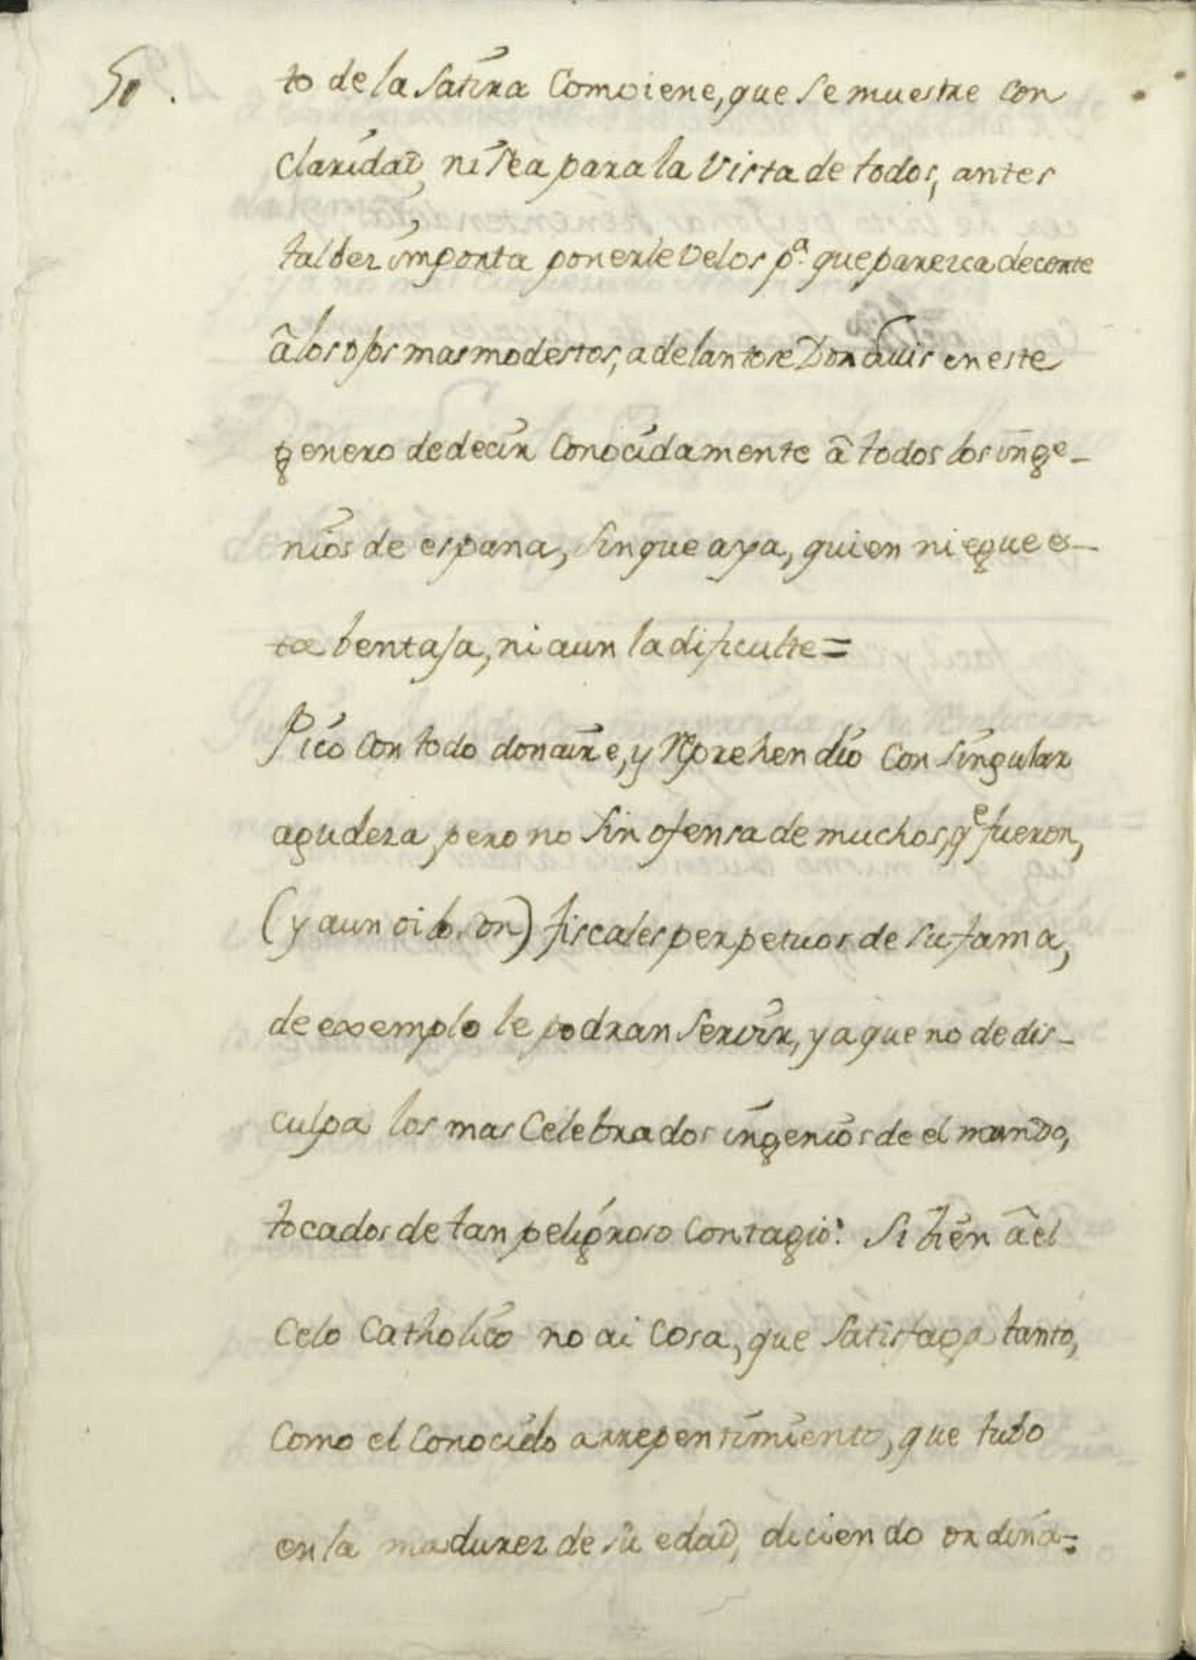 50.
to de la Satira Comviene, que Se muestre con
Claridad, ni Sea para la Vista de todos, antes
tal bez importa ponerle velos pª. que paresca decente
â los ojos mas modestos, adelantose Don Luis en este
genero de decir Conocidamente â todos los inge-
nios de espana, Sin que aya, quien niegue es-
ta bentaja, ni aun la dificulte=
Picò con todo donaire, y Reprehendio con Singular
agudeza, pero no Sin ofensa de muchos, qe fueron,
(y aun oi lo son) fiscales perpetuos de Su fama,
de exemplo le podran Servir, ya que no de dis-
culpa los mas Celebrados ingenios de el mundo,
tocados de tan peligroso Contagio: Si bien â el
Celo Catholico no ai Cosa, que Satisfaga tanto,
Como el Conocido arrepentimiento, que tubo
en la madurez de Su edad, diciendo ordina=